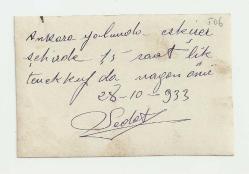 506
Ankara yolunda eskişer
şehirde 15 saat lik
tevekkuf da vagon önü
28-10-933
Sedat